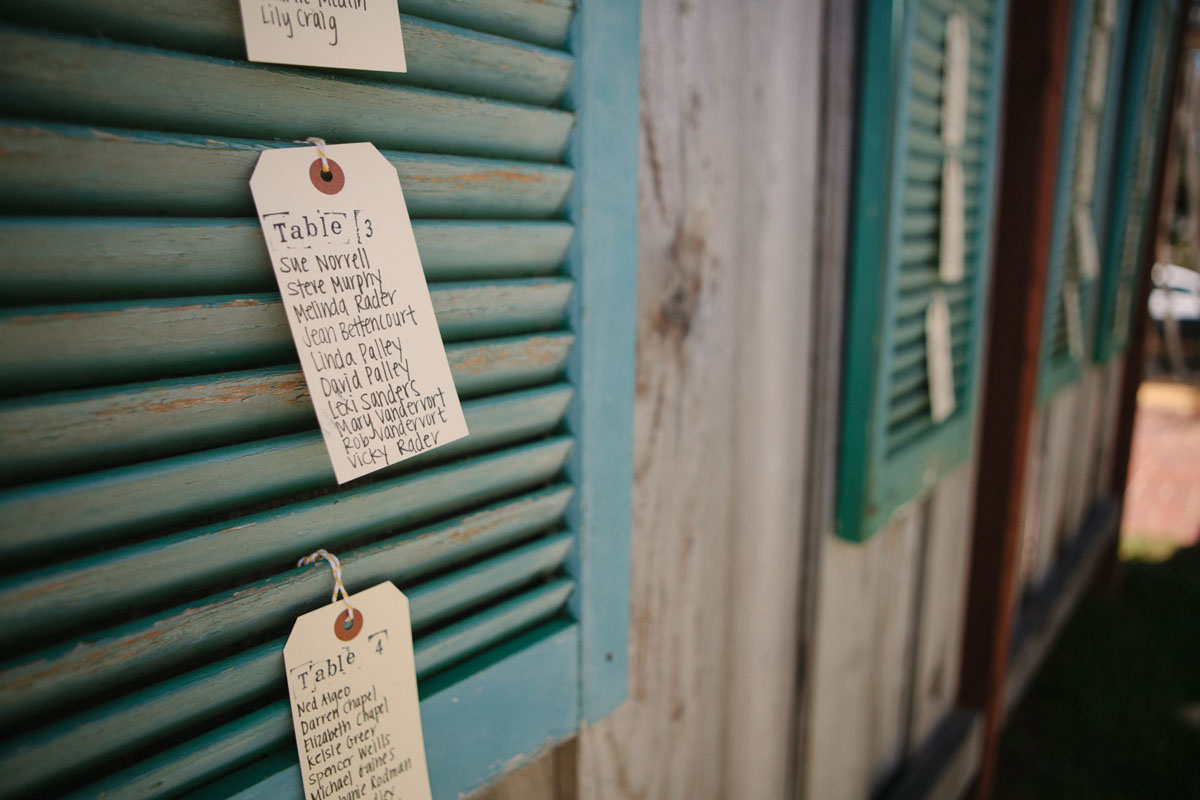 Lily Craig
Table 3
Sue Norrell
Steve Murphy
Melinda Rader
Jean Bettencourt
Linda Palley
David Palley
Lexi Sanders
Mary Vandervort
Rob Vandervort
Vicky Rader
Table 4
Ned Algeo
Darren Chapel
Elizabeth Chapel
Kelsie Greer
Spencer Wells
Michael Gaines
Rodman